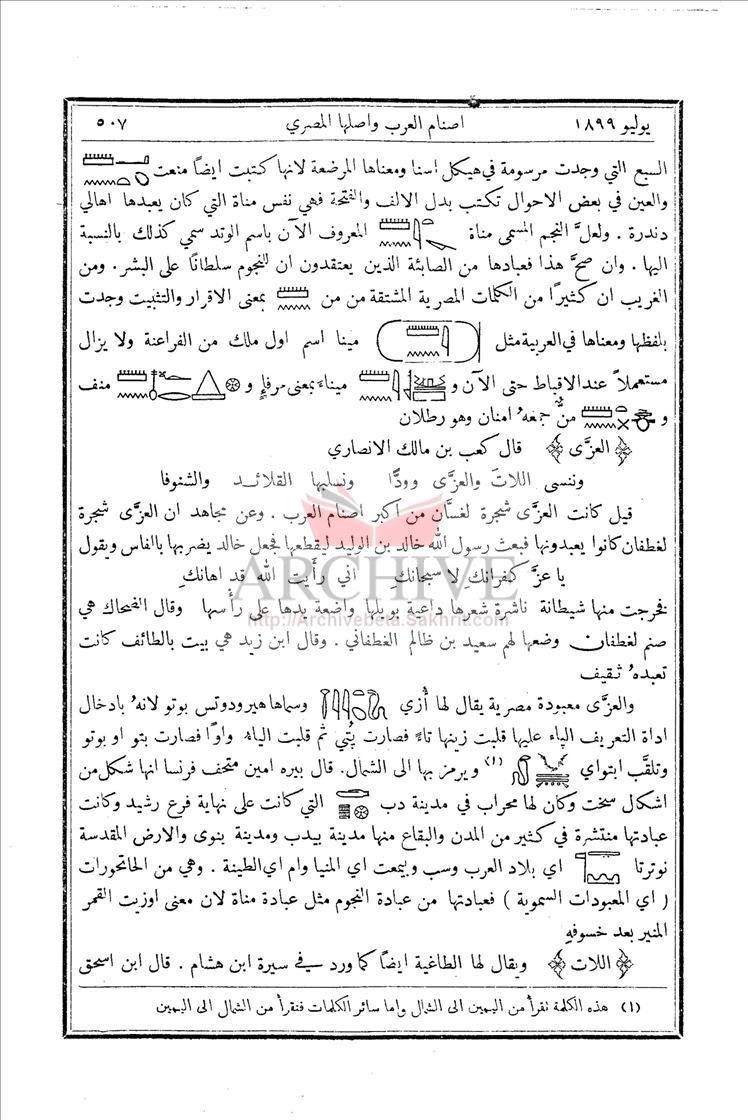 يوليو ١٨٩٩ اصنام العرب واصلها المصري ٥٠٧
السبع التي وجدت مرسومة في هيكل اسنا ومعناها المرضعة لانها كتبت ايضاً منعت
والعين في بعض الاحوال تكتب بدل الالف والفتحة فهي نفس مناة التي كان يعبدها اهالي
دندرة . ولعلَّ النجم المسمى مناة المعروف الآن باسم الوتد سمي كذلك بالنسبة
اليها . وان صحَّ هذا فعبادها من الصابئة الذين يعتقدون ان للنجوم سلطانًا على البشر . ومن
الغريب ان كثيرًا من الكلمات المصرية المشتقة من من بمعنى الاقرار والتثبيت وجدت
بلفظها ومعناها في العربية مثل مينا اسم اول ملك من الفراعنة ولا يزال
مستعملاً عند الاقباط حتى الآن و ميناء بمعنى مرفإ و منف
و منّ جمعهُ امنان وهو رطلان
﴿ العزَّى ﴾ قال كعب بن مالك الانصاري
وننسى اللاتَ والعزَّى وودًّا ونسلبها القلائد والشنوفا
قيل كانت العزَّى شجرة لغسَّان من اكبر اصنام العرب . وعن مجاهد ان العزَّى شجرة
لغطفان كانوا يعبدونها فبعث رسول الله خالد بن الوليد ليقطعها فجعل خالد يضربها بالفاس ويقول
يا عزَّ كفرانكِ لا سبحانك اني رأيت الله قد اهانكِ
فخرجت منها شيطانة ناشرة شعرها داعية بويلها واضعة يدها على رأسها وقال الضحاك هي
صنم لغطفان وضعها لهم سعيد بن ظالم الغطفاني . وقال ابن زيد هي بيت بالطائف كانت
تعبدهُ ثقيف
والعزَّى معبودة مصرية يقال لها أُزي وسماها هيرودوتس بوتو لانهُ بادخال
اداة التعريف الپاء عليها قلبت زينها تاءً فصارت پُتي ثم قلبت الياء واوًا فصارت بتو او بوتو
وتلقَّب ابتواي (١) ويرمز بها الى الشمال. قال بيره امين متحف فرنسا انها شكل من
اشكال سخت وكان لها محراب في مدينة دب التي كانت على نهاية فرع رشيد وكانت
عبادتها منتشرة في كثير من المدن والبقاع منها مدينة بيدب ومدينة ينوى والارض المقدسة
نوترتا اي بلاد العرب وسب وبيمعت اي المنيا وام اي الطينة . وهي من الحاتحورات
( اي المعبودات السموية ) فعبادتها من عبادة النجوم مثل عبادة مناة لان معنى اوزيت القمر
المنير بعد خسوفهِ
﴿ اللات ﴾ ويقال لها الطاغية ايضًا كما ورد في سيرة ابن هشام . قال ابن اسحق
(١) هذه الكلمة تقرأ من اليمين الى الشمال واما سائر الكلمات فتقرأ من الشمال الى اليمين
ARCHIVE
http://Archivebeta.Sakhrit.com